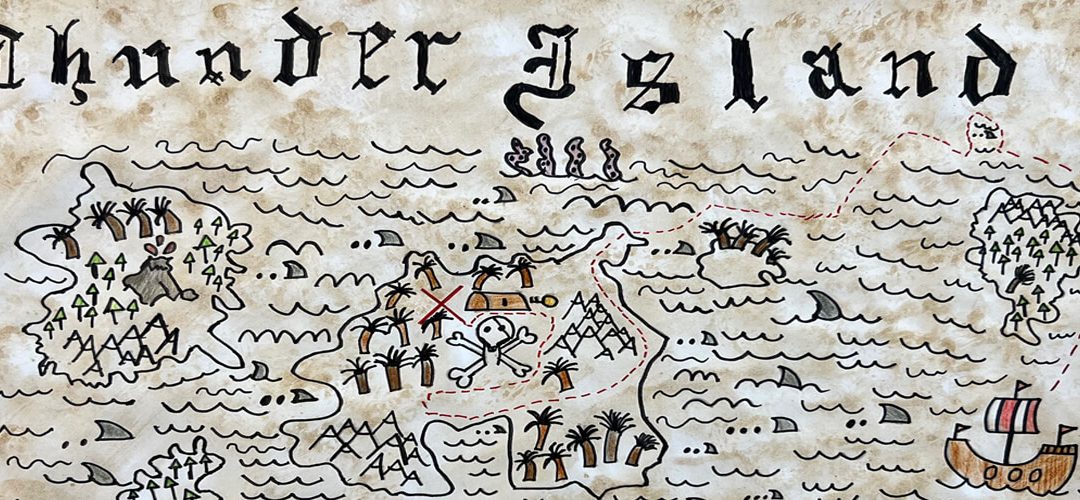 Thunder Island